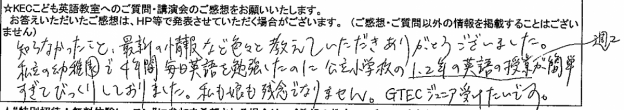 ★KECこども英語教室へのご質問・講演会のご感想をお願いいたします。
お答えいただいたご感想は、HP等で発表させていただく場合がございます。(ご感想・ご質問以外の情報を掲載することはござい
ません)
知らなかったこと、最新の情報など色々と教えていただきありがとうございました。
週2
私立の幼稚園で4年間毎日英語を勉強したのに公立小学校の1.2年の英語の授業が簡単
すぎてびっくりしておりました。私も娘も残念でなりません。GTECジュニア受けたいです。